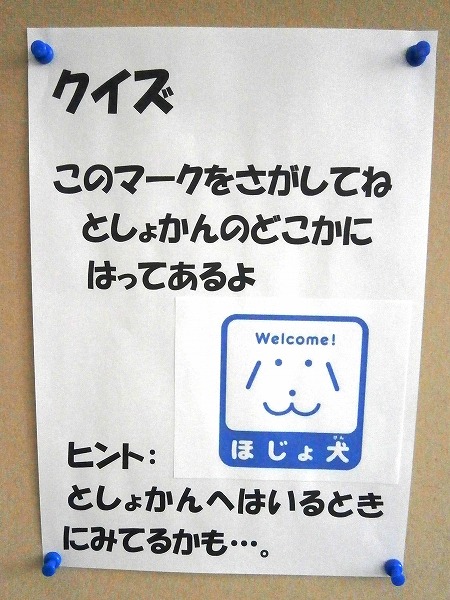 クイズ
このマークをさがしてね
としょかんのどこかに
はってあるよ
Welcome!
ほじょ犬
けん
ヒント:
としょかんへはいるとき
にみてるかも…。